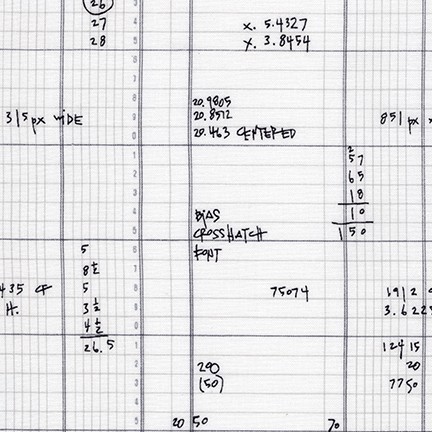 26
27
28
x. 5.4327
y. 3.8454
315px WIDE
20.9805
20.8512
20.463 CENTERED
851px
2
57
65
18
10
150
BIAS
CROSSHATCH
FONT
5
8 1/2
5
3 1/2
4 1/2
26.5
435 CF
H.
75074
1912
3.622
290
(50)
12415
20
7750
20 50
70